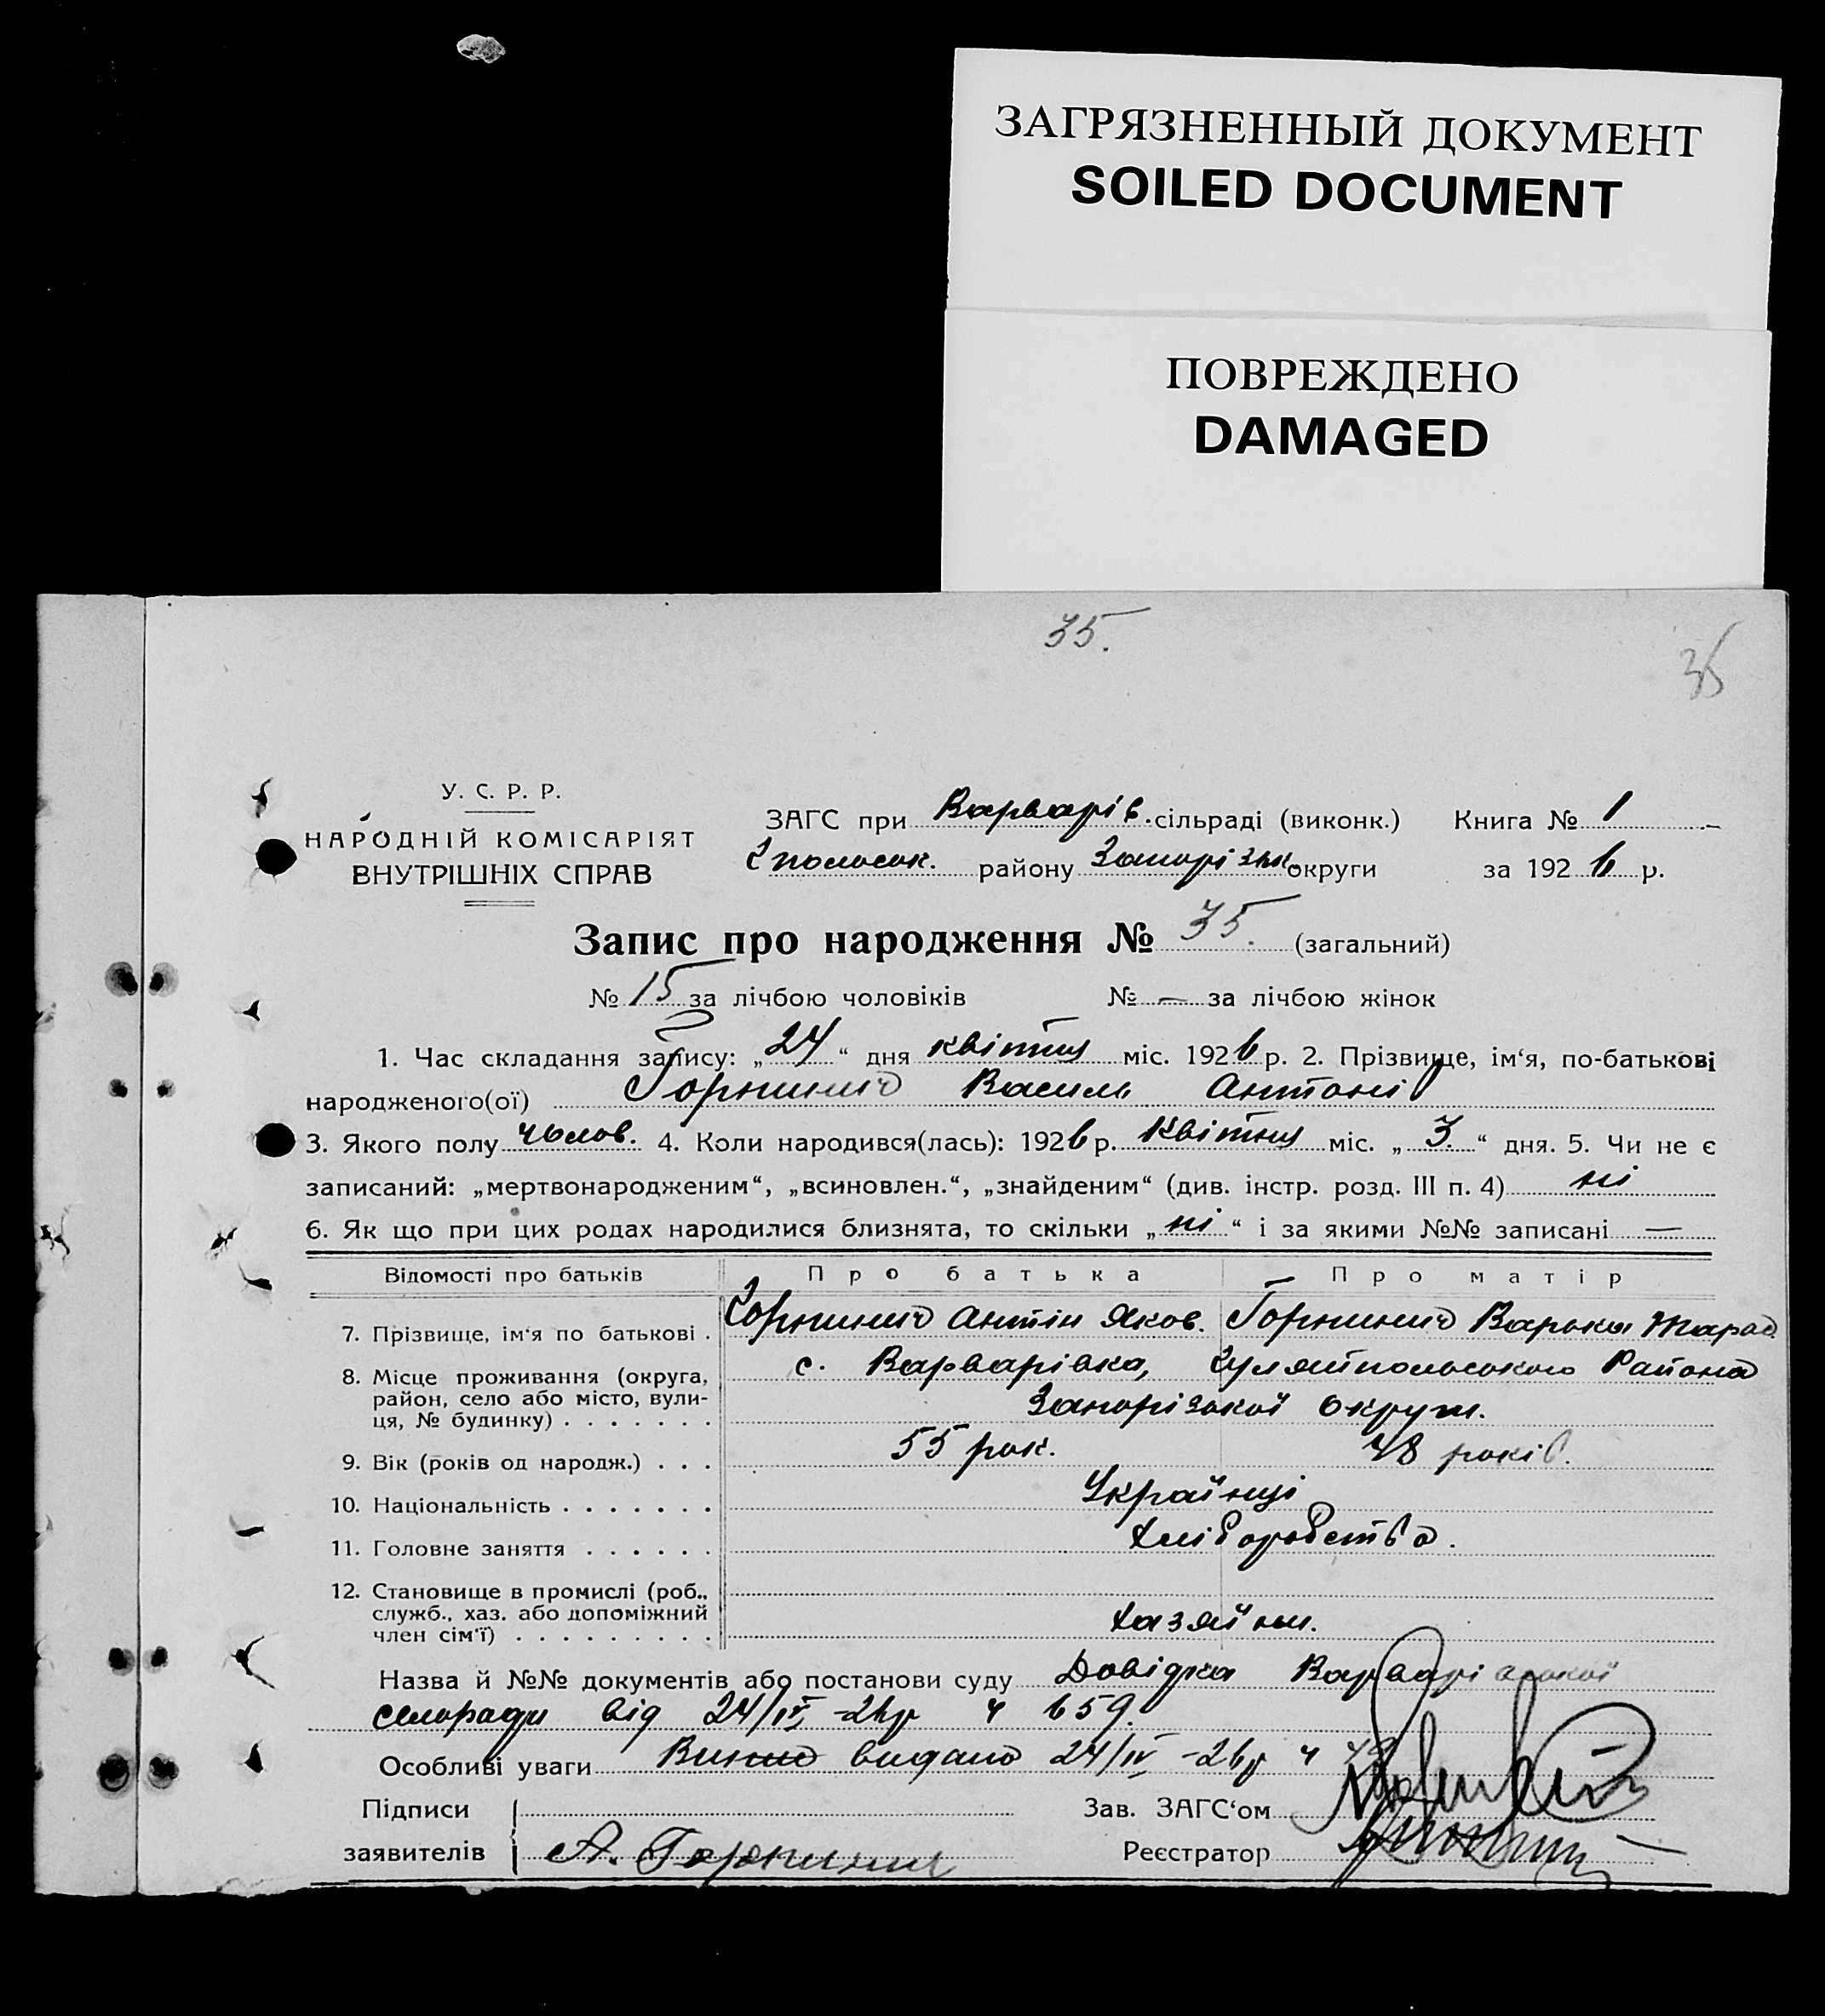 ЗАГРЯЗНЕННЫЙ ДОКУМЕНТ
SOILED DOCUMENT
ПОВРЕЖДЕНО
DAMAGED
35.
35
У. С. Р. Р.
НАРОДНІЙ КОМІСАРІЯТ
ВНУТРІШНІХ СПРАВ
ЗАГС при Варварів. сільраді (виконк.) Книга № 1
району Запорізьк. округи за 1926 р.
Запис про народження № 35. (загальний)
№ 15 за лічбою чоловіків № — за лічбою жінок
1. Час складання запису: „24“ дня квітня міс. 1926 р. 2. Прізвище, ім‘я, по-батькові
народженого(ої) Василь Антонів
3. Якого полу чолов. 4. Коли народився(лась): 1926 р. Квітня міс. „3“ дня. 5. Чи не є
записаний: „мертвонародженим“, „всиновлен.“, „знайденим“ (див. інстр. розд. III п. 4) ні
6. Як що при цих родах народилися близнята, то скільки „ні“ і за якими №№ записані —
Відомості про батьків Про батька Про матір
7. Прізвище, ім‘я по батькові . Антін Яков. Варька Тарас.
8. Місце проживання (округа, район, село або місто, вулиця, № будинку) . . . . . . . с. Варварівка, Гуляйпольського Района
Запорізької округи.
9. Вік (років од народж.) . . . 55 рок. 48 років.
10. Національність . . . . . . . Українці
11. Головне заняття . . . . . . Хліборобство.
12. Становище в промислі (роб., служб., хаз. або допоміжний член сім‘ї) . . . . . . . . . Хазяїни.
Назва й №№ документів або постанови суду Довідка Варварівської
сільради від 24/IV-26р ч 659.
Особливі уваги видано 24/IV-26р ч
Підписи Зав. ЗАГС‘ом
заявителів А. Реєстратор